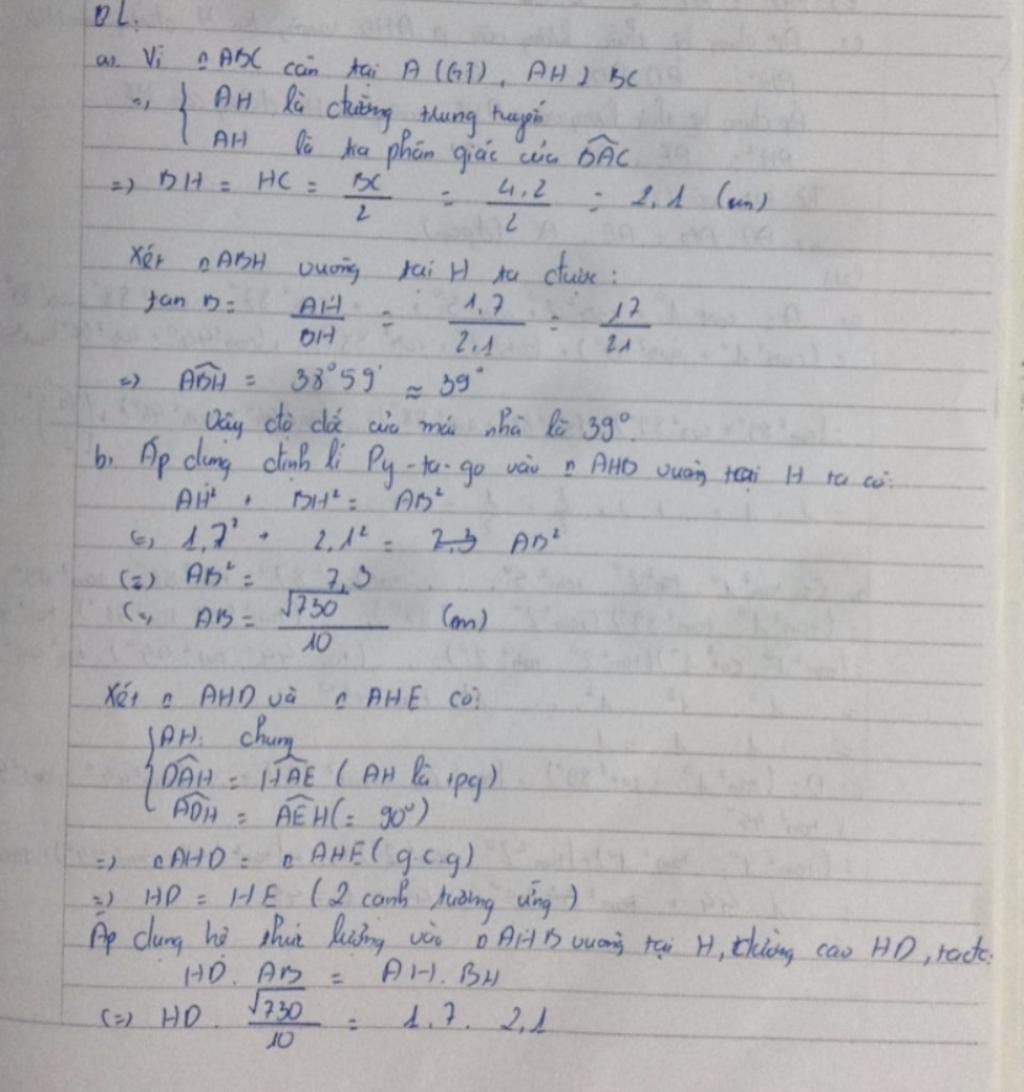 BL:
a, Vì △ABC cân tại A (GT), AH ⊥ BC
=> { AH là đường trung tuyến
AH là tia phân giác của BAC
=> BH = HC = BC/2 = 4,2/2 = 2,1 (m)
Xét △ABH vuông tại H ta được:
tan B = AH/BH = 1,7/2,1 = 17/21
=> ABH = 38°59' ≈ 39°
Vậy độ dốc của mái nhà là 39°.
b, Áp dụng định lí Py-ta-go vào △AHB vuông tại H ta có:
AH² + BH² = AB²
<=> 1,7² + 2,1² = AB²
<=> AB² = 7,3
<=> AB = √730/10 (m)
Xét △AHD và △AHE có:
{ AH: chung
DAH = HAE (AH là tpg)
ADH = AEH (= 90°)
=> △AHD = △AHE (g.c.g)
=> HD = HE (2 cạnh tương ứng)
Áp dụng hệ thức lượng vào △AHB vuông tại H, đường cao HD, tađc:
HD . AB = AH . BH
<=> HD . √730/10 = 1,7 . 2,1